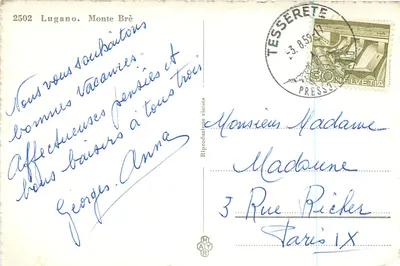 2502 Lugano. Monte Brè
Nous vous souhaitons
bonnes vacances.
Affectueuses pensées et
bons baisers à tous trois
Georges. Anna
Reproduction réservée
TESSERETE
-3.8.59.-11
HELVETIA
Monsieur Madame
Madoune
3 Rue Richer
Paris IX